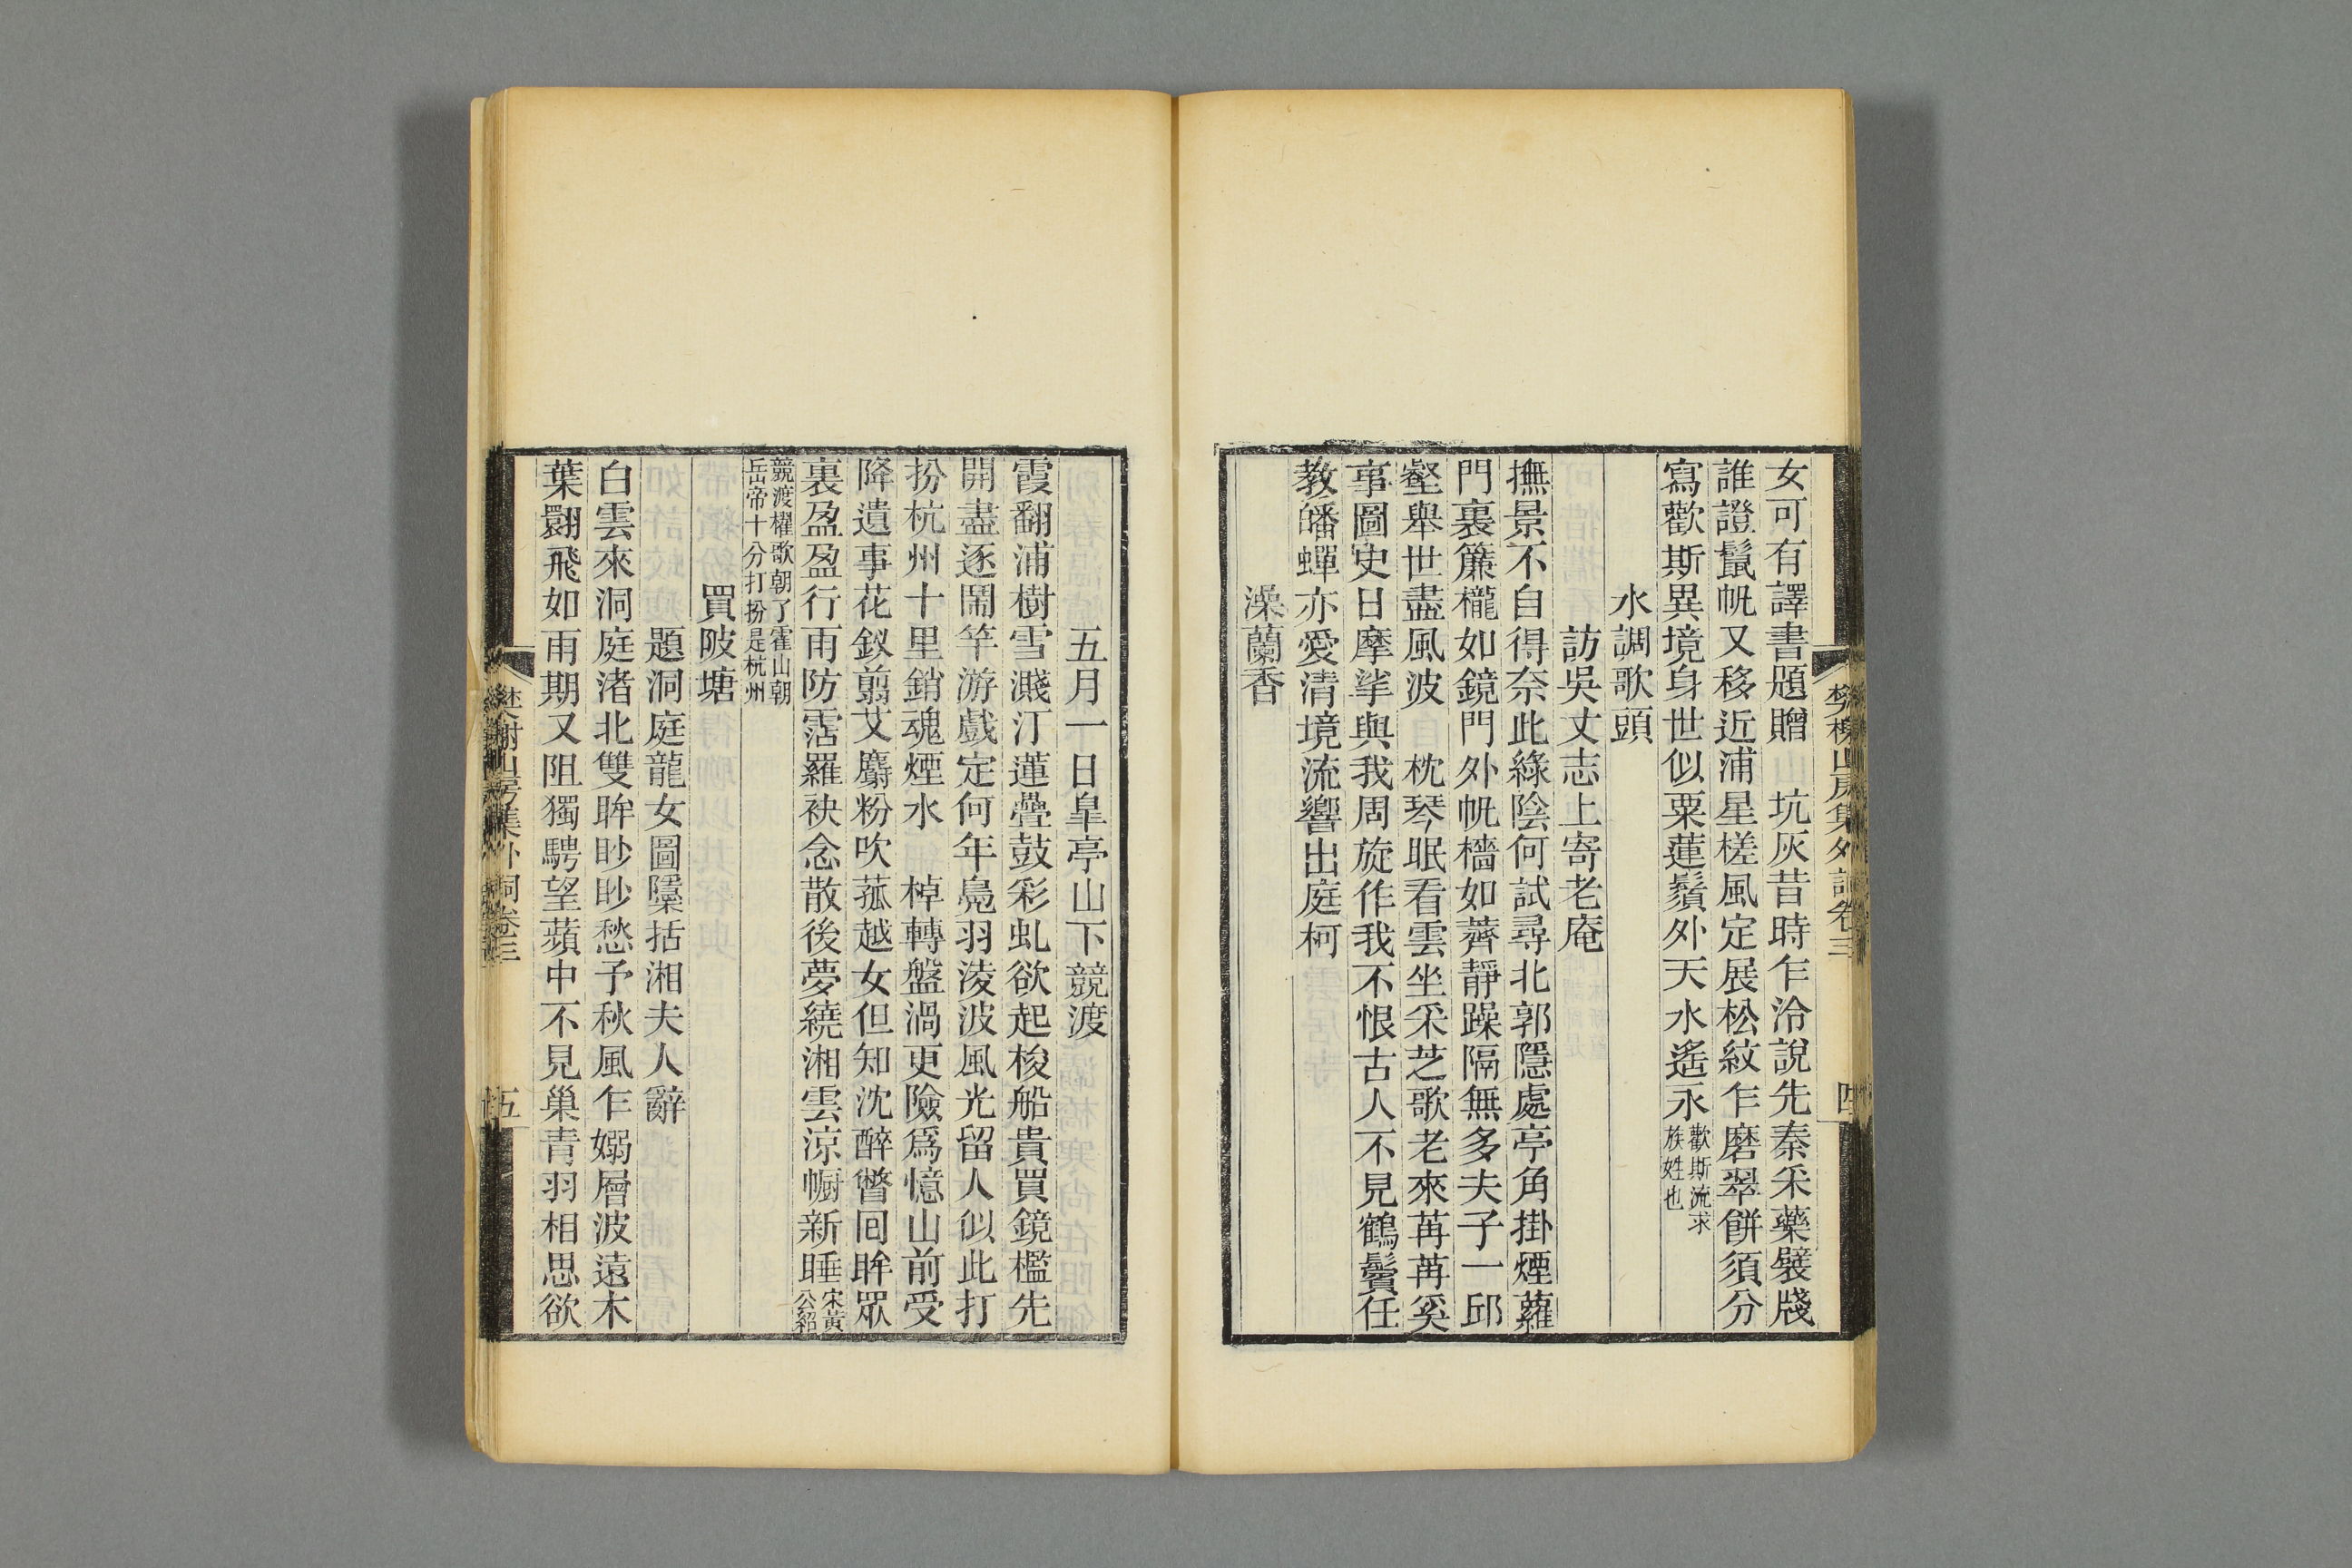 女可有譯書題贈　坑灰昔時乍泠說先秦采藥襞牋
誰證鬣帆又移近浦星槎風定展松紋乍磨翠餅須分
寫歡斯異境身世似粟蓮鬚外天水遙永歡斯流求族姓也
水調歌頭
訪吳丈志上寄老庵
撫景不自得奈此綠陰何試尋北郭隱處亭角掛煙蘿
門裏簾櫳如鏡門外帆檣如薺靜躁隔無多夫子一邱
壑舉世盡風波　枕琴眠看雲坐采芝歌老來苒苒奚
事圖史日摩挲與我周旋作我不恨古人不見鶴鬢任
教皤蟬亦愛清境流響出庭柯
澡蘭香
樊榭山房集外詞卷三
四
五月一日皐亭山下競渡
霞翻浦樹雪濺汀蓮疊鼓彩虬欲起梭船貴買鏡檻先
開盡逐鬧竿游戲定何年鳧羽淩波風光留人似此打
扮杭州十里銷魂煙水　棹轉盤渦更險爲憶山前受
降遺事花釵翦艾麝粉吹菰越女但知沈醉瞥囘眸眾
裏盈盈行雨防霑羅袂念散後夢繞湘雲涼幮新睡宋黃公紹
競渡櫂歌朝了霍山朝岳帝十分打扮是杭州
買陂塘
題洞庭龍女圖隱括湘夫人辭
白雲來洞庭渚北雙眸眇眇愁予秋風乍嫋層波遠木
葉翾飛如雨期又阻獨騁望蘋中不見巢青羽相思欲
樊榭山房集外詞卷三
五